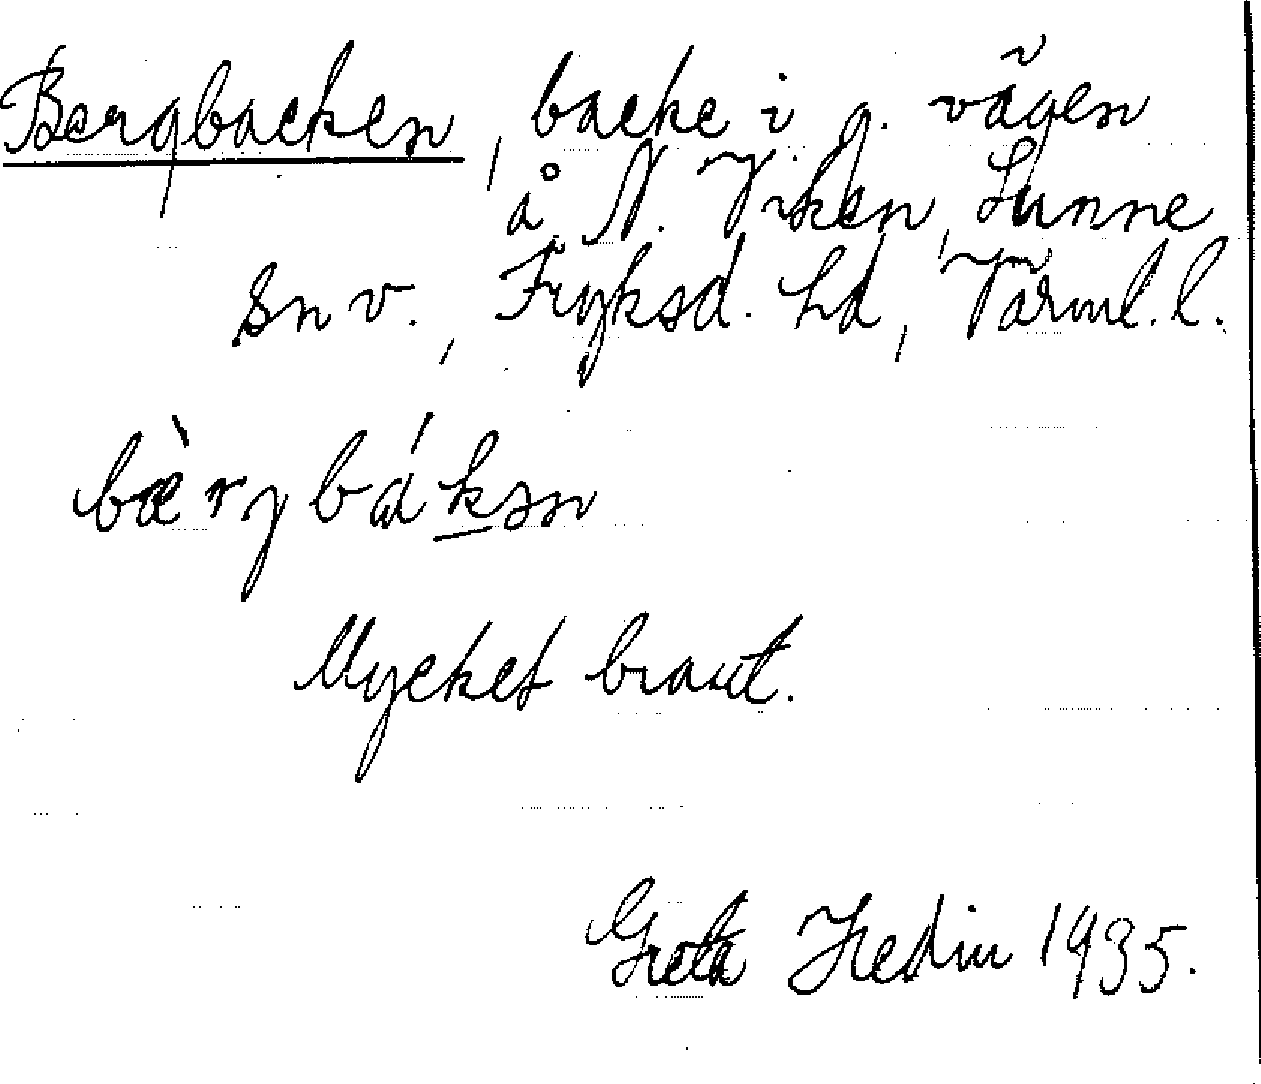 Bergbacken, backe i g. vägen
å N. Viken, Sunne
sn v., Fryksd. hd, Värml. l.
bæ̀rybákən
Mycket brant.
Greta Hedin 1935.